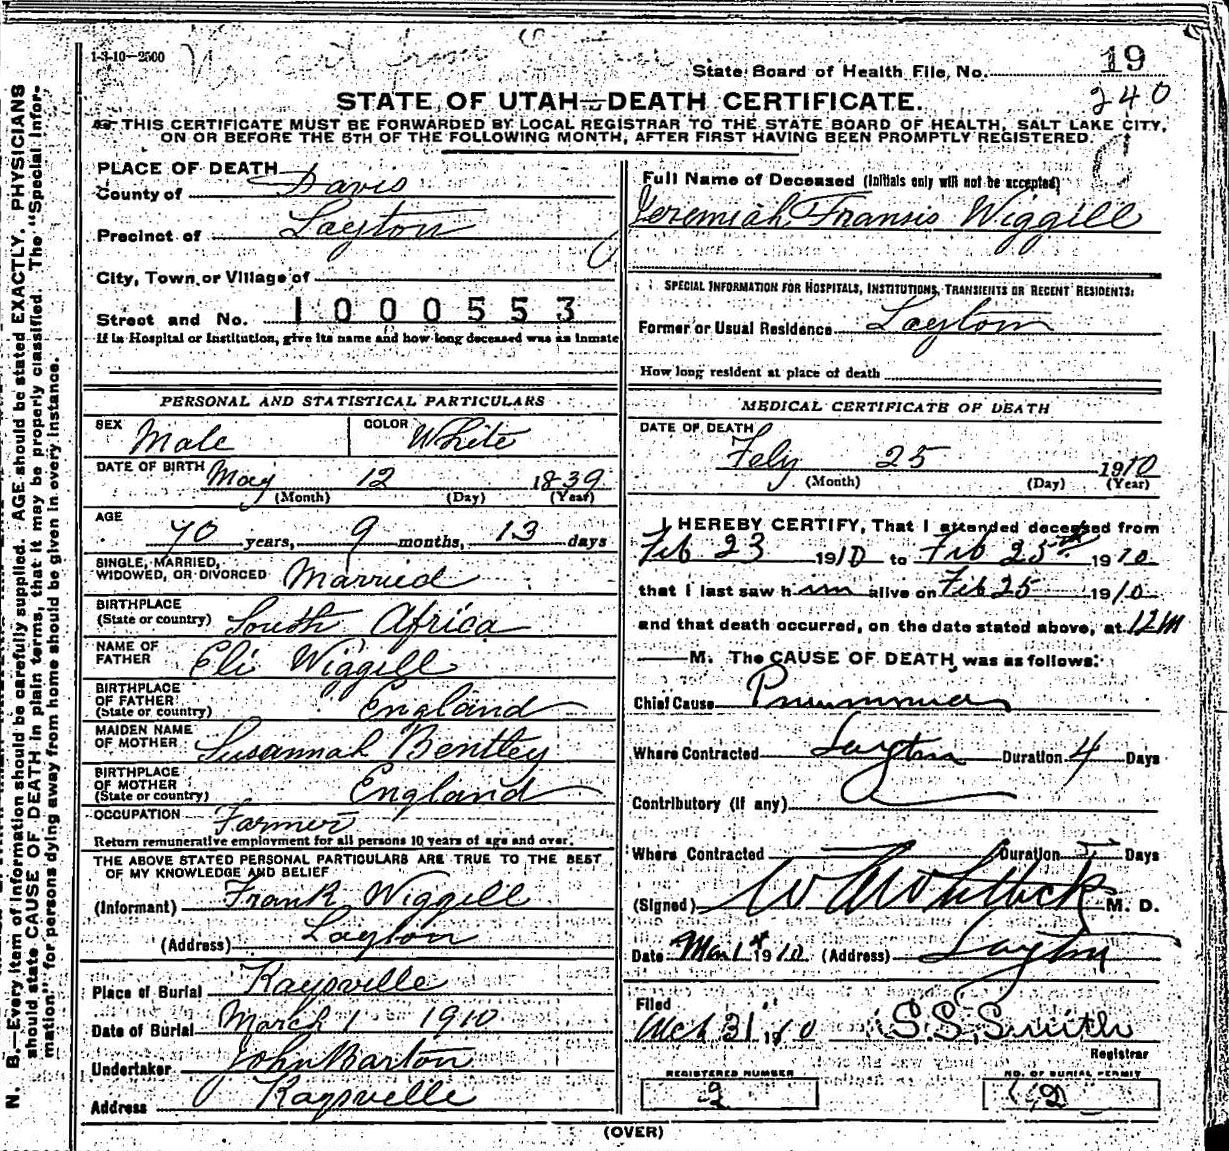 1-3-10—2500
State Board of Health File, No. 19
240
STATE OF UTAH—DEATH CERTIFICATE.
THIS CERTIFICATE MUST BE FORWARDED BY LOCAL REGISTRAR TO THE STATE BOARD OF HEALTH, SALT LAKE CITY,
ON OR BEFORE THE 5TH OF THE FOLLOWING MONTH, AFTER FIRST HAVING BEEN PROMPTLY REGISTERED.
N. B.—Every item of information should be carefully supplied. AGE should be stated EXACTLY. PHYSICIANS
should state CAUSE OF DEATH in plain terms, that it may be properly classified. The "Special Infor-
mation" for persons dying away from home should be given in every instance.
PLACE OF DEATH
County of Davis
Precinct of Layton
City, Town or Village of
Street and No. 1000553
If in Hospital or Institution, give its name and how long deceased was an inmate
PERSONAL AND STATISTICAL PARTICULARS
SEX Male COLOR White
DATE OF BIRTH May 12 1839
(Month) (Day) (Year)
AGE
70 years, 9 months, 13 days
SINGLE, MARRIED,
WIDOWED, OR DIVORCED Married
BIRTHPLACE
(State or country) South Africa
NAME OF
FATHER Eli Wiggill
BIRTHPLACE
OF FATHER
(State or country) England
MAIDEN NAME
OF MOTHER Susannah Bentley
BIRTHPLACE
OF MOTHER
(State or country) England
OCCUPATION Farmer
Return remunerative employment for all persons 10 years of age and over.
THE ABOVE STATED PERSONAL PARTICULARS ARE TRUE TO THE BEST
OF MY KNOWLEDGE AND BELIEF
(Informant) Frank Wiggill
(Address) Layton
Place of Burial Kaysville
Date of Burial March 1 1910
Undertaker John Barton
Address Kaysville
Full Name of Deceased (Initials only will not be accepted)
Jeremiah Fransis Wiggill
SPECIAL INFORMATION FOR HOSPITALS, INSTITUTIONS, TRANSIENTS OR RECENT RESIDENTS:
Former or Usual Residence Layton
How long resident at place of death
MEDICAL CERTIFICATE OF DEATH
DATE OF DEATH
Feby 25 1910
(Month) (Day) (Year)
I HEREBY CERTIFY, That I attended deceased from
Feb 23 1910 to Feb 25th 1910
that I last saw him alive on Feb 25 1910
and that death occurred, on the date stated above, at 12 M
M. The CAUSE OF DEATH, was as follows:
Chief Cause
Where Contracted Layton Duration 4 Days
Contributory (if any)
Where Contracted Duration Days
(Signed) W A Whitlock M. D.
Date Mar 1 1910 (Address) Layton
Filed
Mch 31, 1910 S. S. Smith
Registrar
REGISTERED NUMBER
2
NO. OF BURIAL PERMIT
2
(OVER)